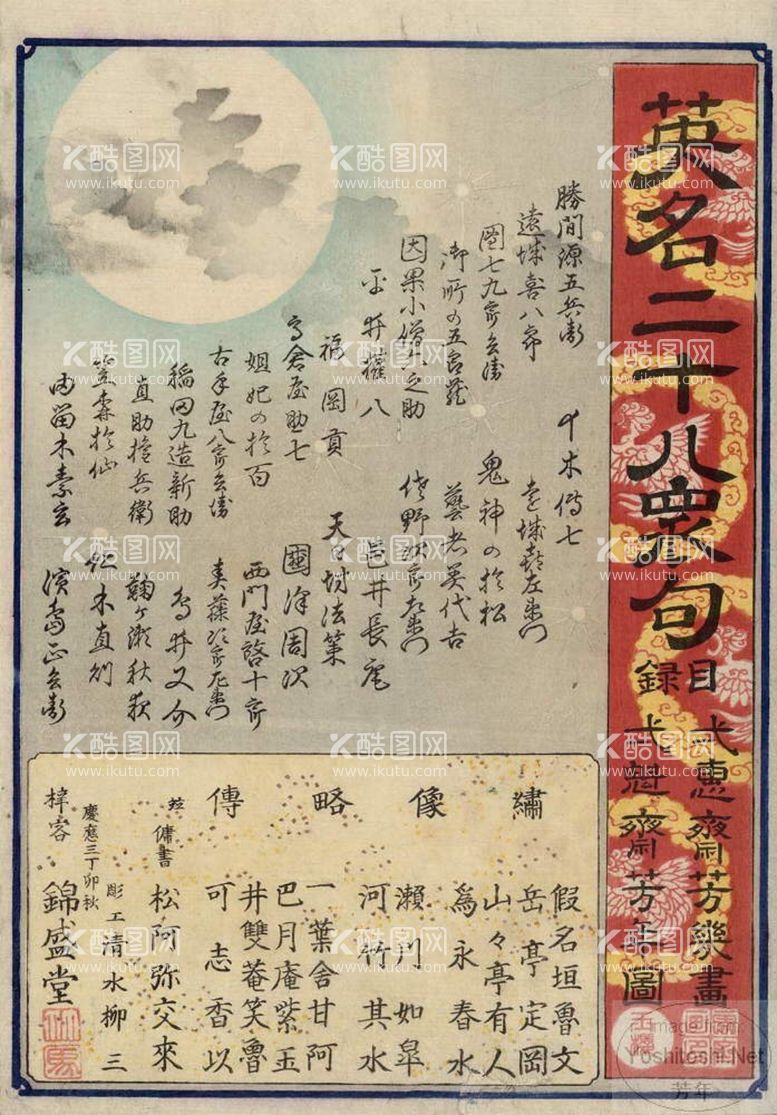 英名二十八衆句
目録
一蕙齋芳幾畫
一魁齋芳年圖
勝間源五兵衛
十木傳七
遠城喜八郎
遠城喜左衛門
團七九郎兵衛
鬼神の於松
御所の五郎蔵
藝者美代吉
因果小僧六之助
佐野次郎左衛門
平井權八
邑井長庵
福岡貢
天日坊法策
高倉屋助七
國澤周次
妲妃の於百
西門屋啓十郎
古手屋八郎兵衛
斉藤次郎左衛門
稲田九造新助
鳥井又介
直助權兵衛
鞠ヶ瀬秋夜
笠森於仙
仁木直則
由留木素玄
濱島正兵衛
繡像略傳
假名垣魯文
岳亭定岡
山々亭有人
爲永春水
瀬川如皐
河竹其水
一葉舎甘阿
巴月庵紫玉
井雙菴笑魯
可志香以
傭書
松阿弥交来
彫工清水柳三
慶應三丁卯秋
梓客
錦盛堂
酷图网
www.ikutu.com
Image from
Yoshitoshi.Net
芳年